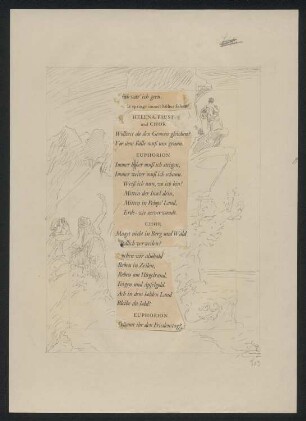 nun war ich gern.
HELENA, FAUST
und CHOR
Wolltest du den Gemsen gleichen?
Vor dem Falle muß uns graun.
EUPHORION
Immer höher muß ich steigen,
Immer weiter muß ich schaun.
Weiß ich nun, wo ich bin!
Mitten der Insel drin,
Mitten in Pelops' Land,
Erde- wie seeverwandt.
CHOR
Magst nicht in Berg und Wald
Friedlich verweilen?
suchen wir alsobald
Reben in Zeilen,
Reben am Hügelrand,
Feigen und Apfelgold.
Ach in dem holden Land
Bleibe du hold!
EUPHORION
Träumt ihr den Friedenstag?